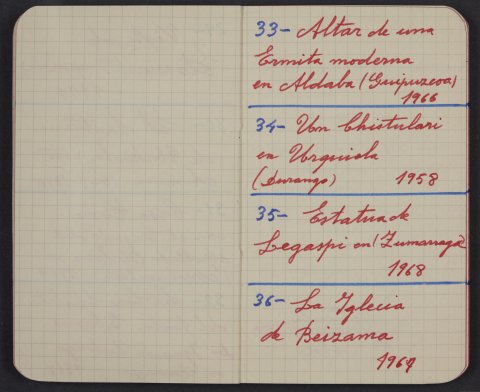 33- Altar de una
Ermita moderna
en Aldaba (Guipuzcoa)
1966
34- Un Chistulari
en Urquiola
(Durango) 1958
35- Estatua de
Legaspi en (Zumarraga
1968
36- La Iglecia
de Beizama
1967